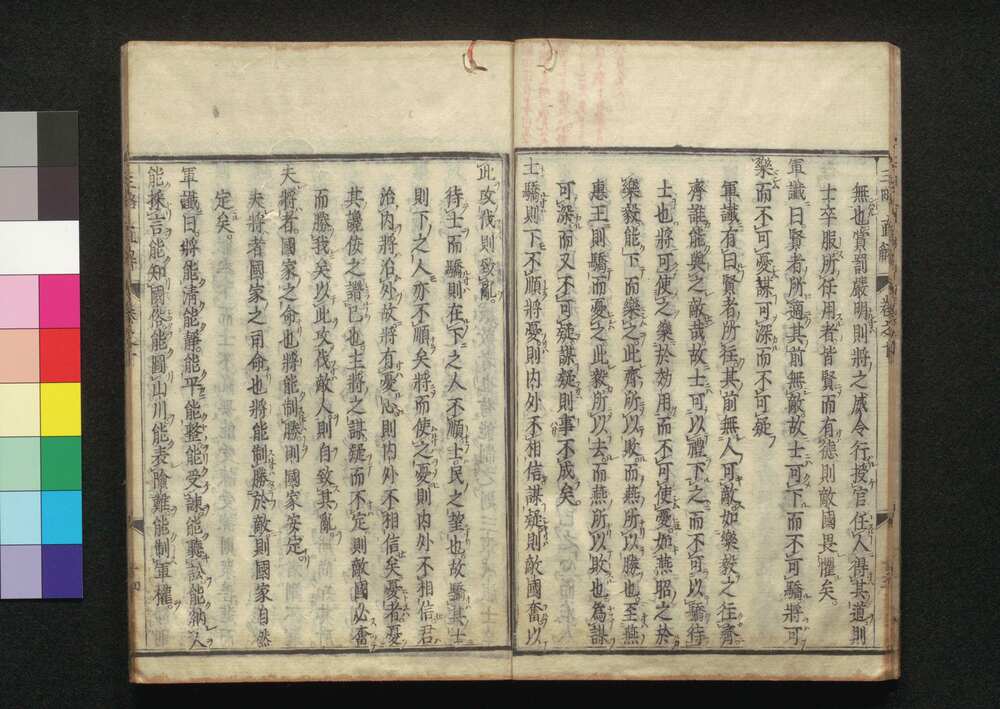 無也賞罰嚴明則將之威令行授官任人得其道則
士卒服所任用者皆賢而有德則敵國畏懼矣
軍讖曰賢者所適其前無敵故士可下而不可驕將可
樂而不可憂謀可深而不可疑
軍讖有曰賢者所往其前無人可敵如樂毅之往齊
齊誰能與之敵哉故士可以禮下之而不可以驕待
士也將可使之樂於効用而不可使憂如燕昭之於
樂毅能下而樂之此齊所以敗而燕所以勝也至燕
惠王則驕而憂之此毅所以去而燕所以敗也為謀
可深而又不可疑謀疑則事不成矣
士驕則下不順將憂則内外不相信謀疑則敵國奮以
此攻伐則致亂
待士而驕則在下之人不順士民之望也故驕其士
則下之人亦不順矣將而使之憂則内外不相信君
治内將治外故將有憂心則内外不相信矣憂者憂
其讒佞之譖己也主將之謀疑而不定則敵國必奮
而勝我矣以此攻伐敵人則自致其亂
夫將者國家之命也將能制勝則國家安定
夫將者國家之司命也將能制勝於敵則國家自然
定矣
軍讖曰將能清能靜能平能整能受諫能聽訟能納人
能採言能知國俗能圖山川能表險難能制軍權